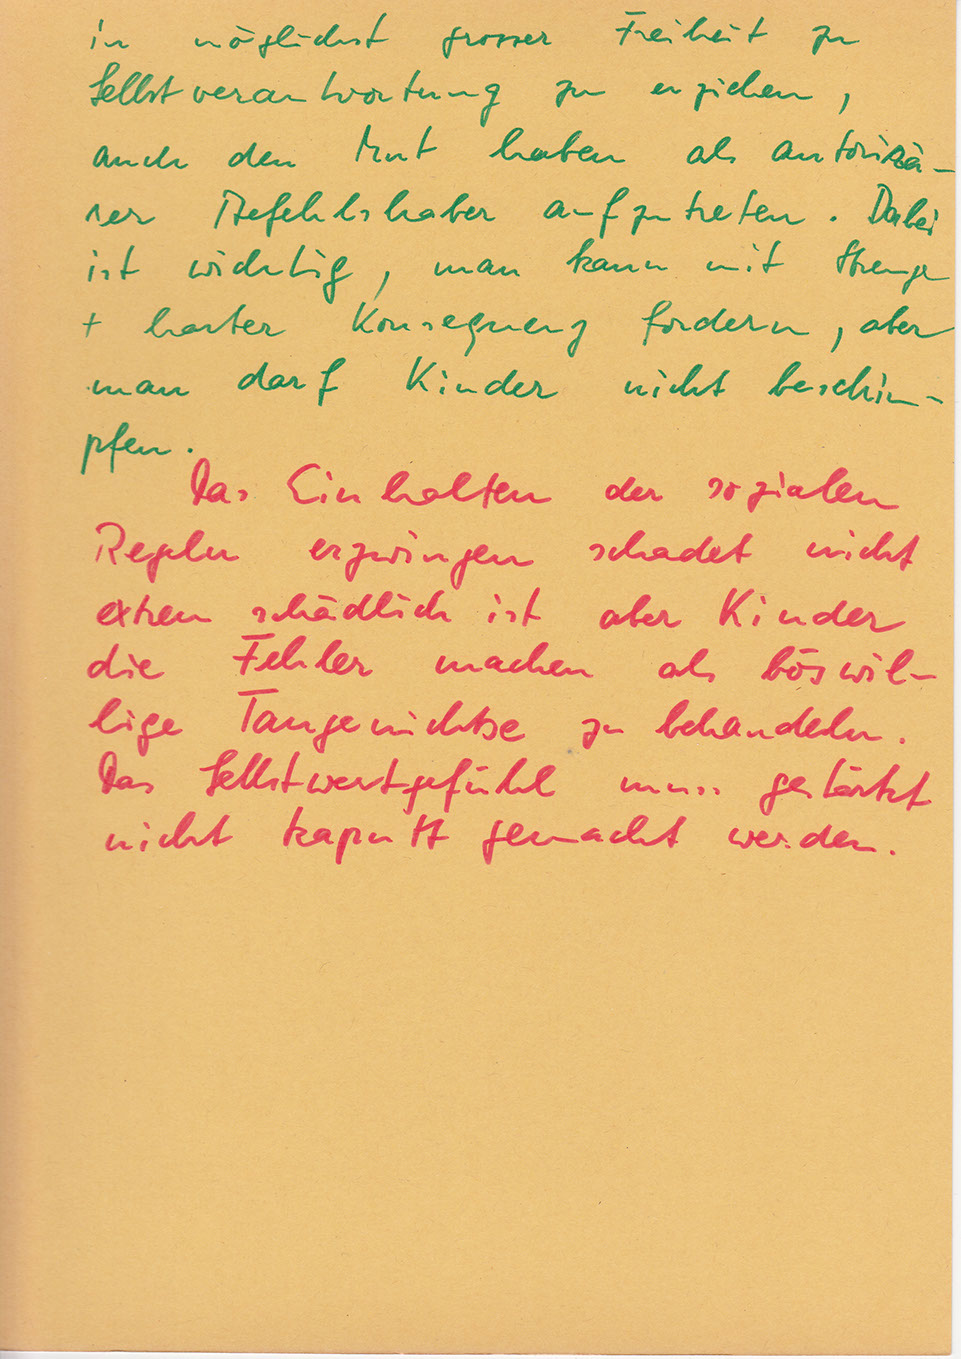 in möglichst grosser Freiheit zu
Selbstverantwortung zu erziehen,
auch den Mut haben als autoritä-
rer Befehlshaber aufzutreten. Dabei
ist wichtig, man kann mit Strenge
+ harter Konsequenz fordern, aber
man darf Kinder nicht beschim-
pfen.
Das Einhalten der sozialen
Regeln erzwingen schadet nicht
extrem schädlich ist aber Kinder
die Fehler machen als böswil-
lige Taugenichtse zu behandeln.
Das Selbstwertgefühl muss gestärkt
nicht kaputt gemacht werden.